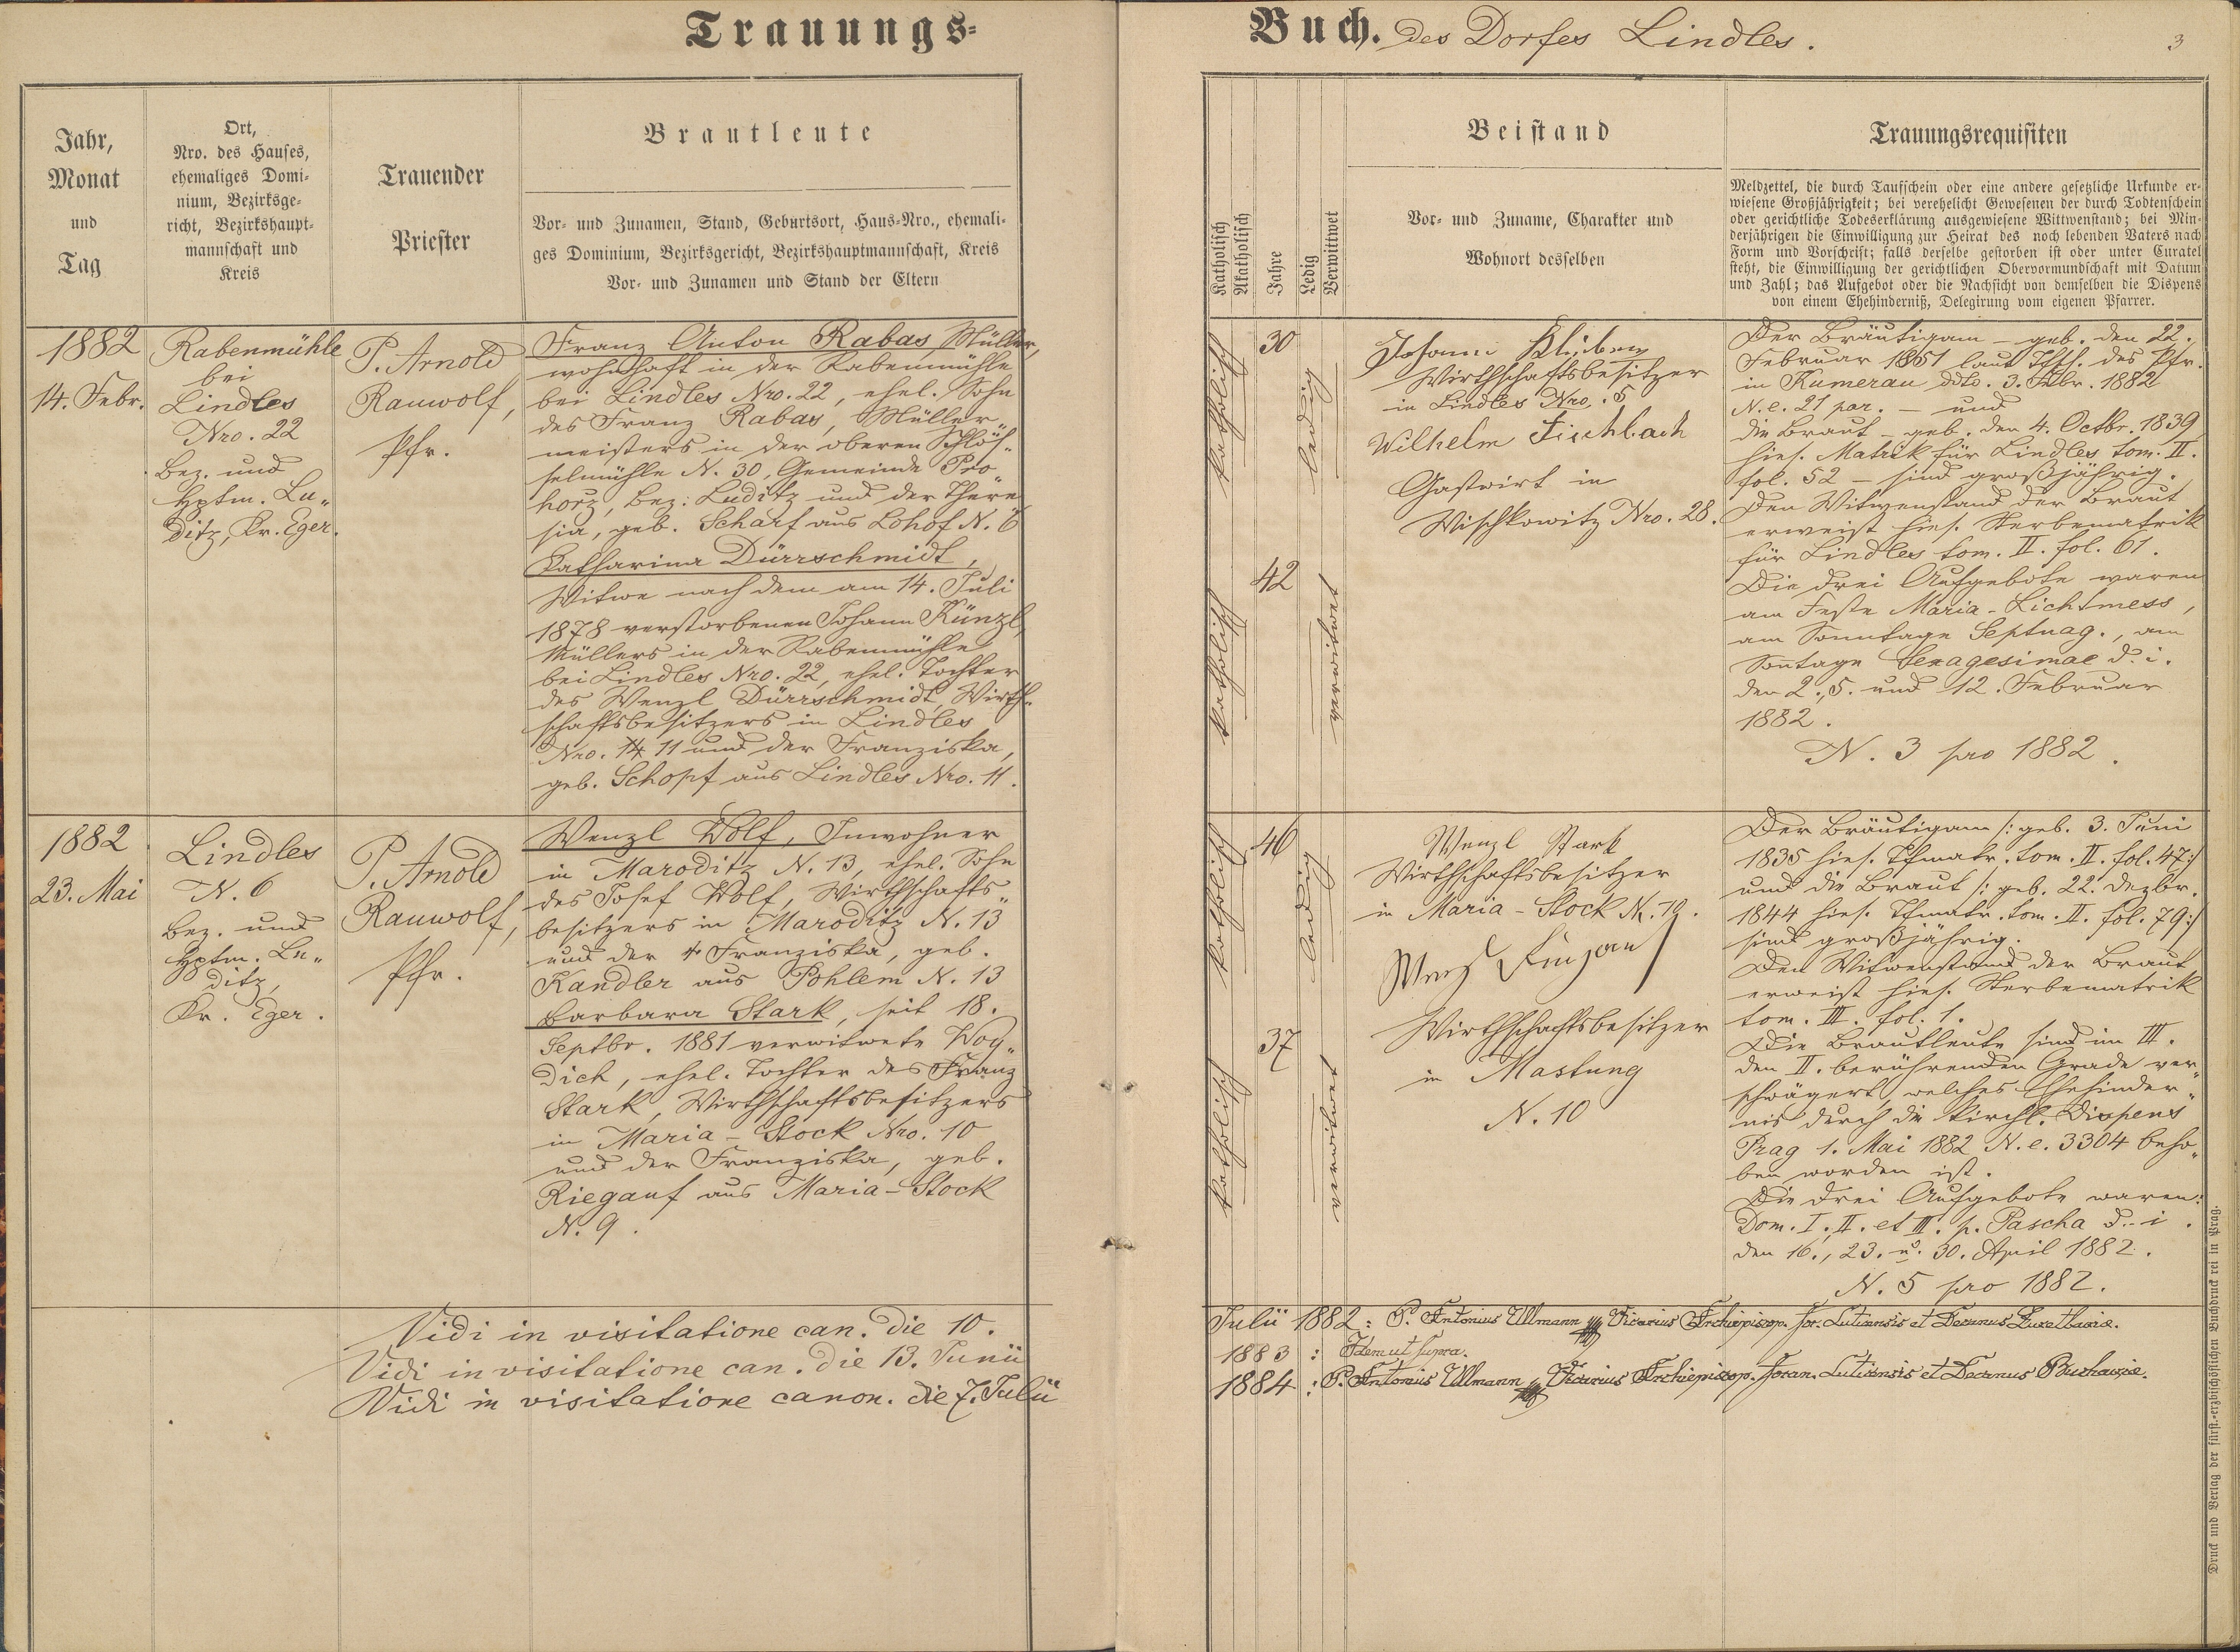 Trauungs-
Jahr,
Monat
und
Tag
Ort,
Nro. des Hauses,
ehemaliges Domi-
nium, Bezirksge-
richt, Bezirkshaupt-
mannschaft und
Kreis
Trauender
Priester
Brautleute
Vor- und Zunamen, Stand, Geburtsort, Haus-Nro., ehemali-
ges Dominium, Bezirksgericht, Bezirkshauptmannschaft, Kreis
Vor- und Zunamen und Stand der Eltern
1882
14. Febr.
Rabenmühle
bei
Lindles
Nro. 22
Bez. und
Hptm. Lu„
ditz, Kr. Eger.
P. Arnold
Rauwolf,
Pfr.
Franz Anton Rabas, Müller,
wohnhaft in der Rabenmühle
bei Lindles Nro. 22, ehel. Sohn
des Franz Rabas, Müller„
meisters in der oberen Schlös„
selmühle N. 30, Gemeinde Pro„
horz, Bez: Luditz und der There„
sia, geb. Scharf aus Lohof N. 6
Katharina Dürrschmidt,
Witwe nach dem am 14. Juli
1878 verstorbenen Johann Künzl,
Müllers in der Rabenmühle
bei Lindles Nro. 22, ehel. Tochter
des Wenzl Dürrschmidt, Wirth-
schaftsbesitzers in Lindles
Nro. 14 11 und der Franziska,
geb. Schopf aus Lindles Nro. 11.
1882
23. Mai
Lindles
N. 6
Bez. und
Hptm. Lu„
ditz,
Kr. Eger.
P. Arnold
Rauwolf,
Pfr.
Wenzl Wolf, Inwohner
in Maroditz N. 13, ehel. Sohn
des Josef Wolf, Wirthschafts„
besitzers in Maroditz N. 13
und der † Franziska, geb.
Kandler aus Pohlem N. 13
Barbara Stark, seit 18.
Septbr. 1881 verwitwete Woy„
dich, ehel. Tochter des Franz
Stark, Wirthschaftsbesitzers
in Maria-Stock Nro. 10
und der Franziska, geb.
Riegauf aus Maria-Stock
N. 9.
Buch. des Dorfes Lindles.
3
Katholisch
Akatholisch
Jahre
Ledig
Verwittwet
Beistand
Vor- und Zuname, Charakter und
Wohnort desselben
Trauungsrequisiten
Meldzettel, die durch Taufschein oder eine andere gesetzliche Urkunde er-
wiesene Großjährigkeit; bei verehelicht Gewesenen der durch Todtenschein
oder gerichtliche Todeserklärung ausgewiesene Wittwenstand; bei Min-
derjährigen die Einwilligung zur Heirat des noch lebenden Vaters nach
Form und Vorschrift; falls derselbe gestorben ist oder unter Curatel
steht, die Einwilligung der gerichtlichen Obervormundschaft mit Datum
und Zahl; das Aufgebot oder die Nachsicht von demselben die Dispens
von einem Ehehinderniß, Delegirung vom eigenen Pfarrer.
katholisch
30
ledig
katholisch
42
verwitwet
Johann
Wirthschaftsbesitzer
in Lindles Nro. 5
Wilhelm Fischbach
Gastwirt in
Wischkowitz Nro. 28.
Der Bräutigam – geb. den 22.
Februar 1851 laut Tfsch. des Pfr.
in Kumerau ddto. 3. Febr. 1882
N. e. 21 par. – und
die Braut – geb. den 4. Octbr. 1839
hies. Matrik für Lindles tom. II.
fol. 52 – sind großjährig.
Den Witwenstand der Braut
erweist hies. Sterbematrik
für Lindles tom. II. fol. 61.
Die drei Aufgebote waren
am Feste Maria-Lichtmess,
am Sonntage Septuag., am
Sontage Sexagesimae d. i.
den 2., 5. und 12. Februar
1882.
N. 3 pro 1882.
katholisch
46
ledig
katholisch
37
verwitwet
Wenzl Stark
Wirthschaftsbesitzer
in Maria-Stock N. 19.
Wenzl
Wirthschaftsbesitzer
in Mastung
N. 10
Der Bräutigam /: geb. 3. Juni
1835 hies. Tfmatr. tom. II. fol. 47:/
und die Braut /: geb. 22. Dezbr.
1844 hies. Tfmatr. tom. II. fol. 79:/
sind großjährig.
Den Witwenstand der Braut
erweist hies. Sterbematrik
tom. III. fol. 1.
Die Brautleute sind im III.
den II. berührenden Grade ver„
schwägert, welches Ehehinder„
nis durch die kirchl. Dispens
Prag 1. Mai 1882 N. e. 3304 beho„
ben worden ist.
Die drei Aufgebote waren:
Dom. I., II. et III. p. Pascha d. i.
den 16., 23. u. 30. April 1882.
N. 5 pro 1882.
Vidi in visitatione can. die 10. Julii 1882: P. Antonius Ullmann Vicarius Archiepiscop. for. Luticensis et Decanus
Vidi in visitatione can. die 13. Junii 1883: Idem ut supra.
Vidi in visitatione canon. die 7. Julii 1884: P. Antonius Ullmann Vicarius Archiepiscop. foran. Luticensis et Decanus Buchaviae.
Druck und Verlag der fürst.-erzbischöflichen Buchdruckerei in Prag.